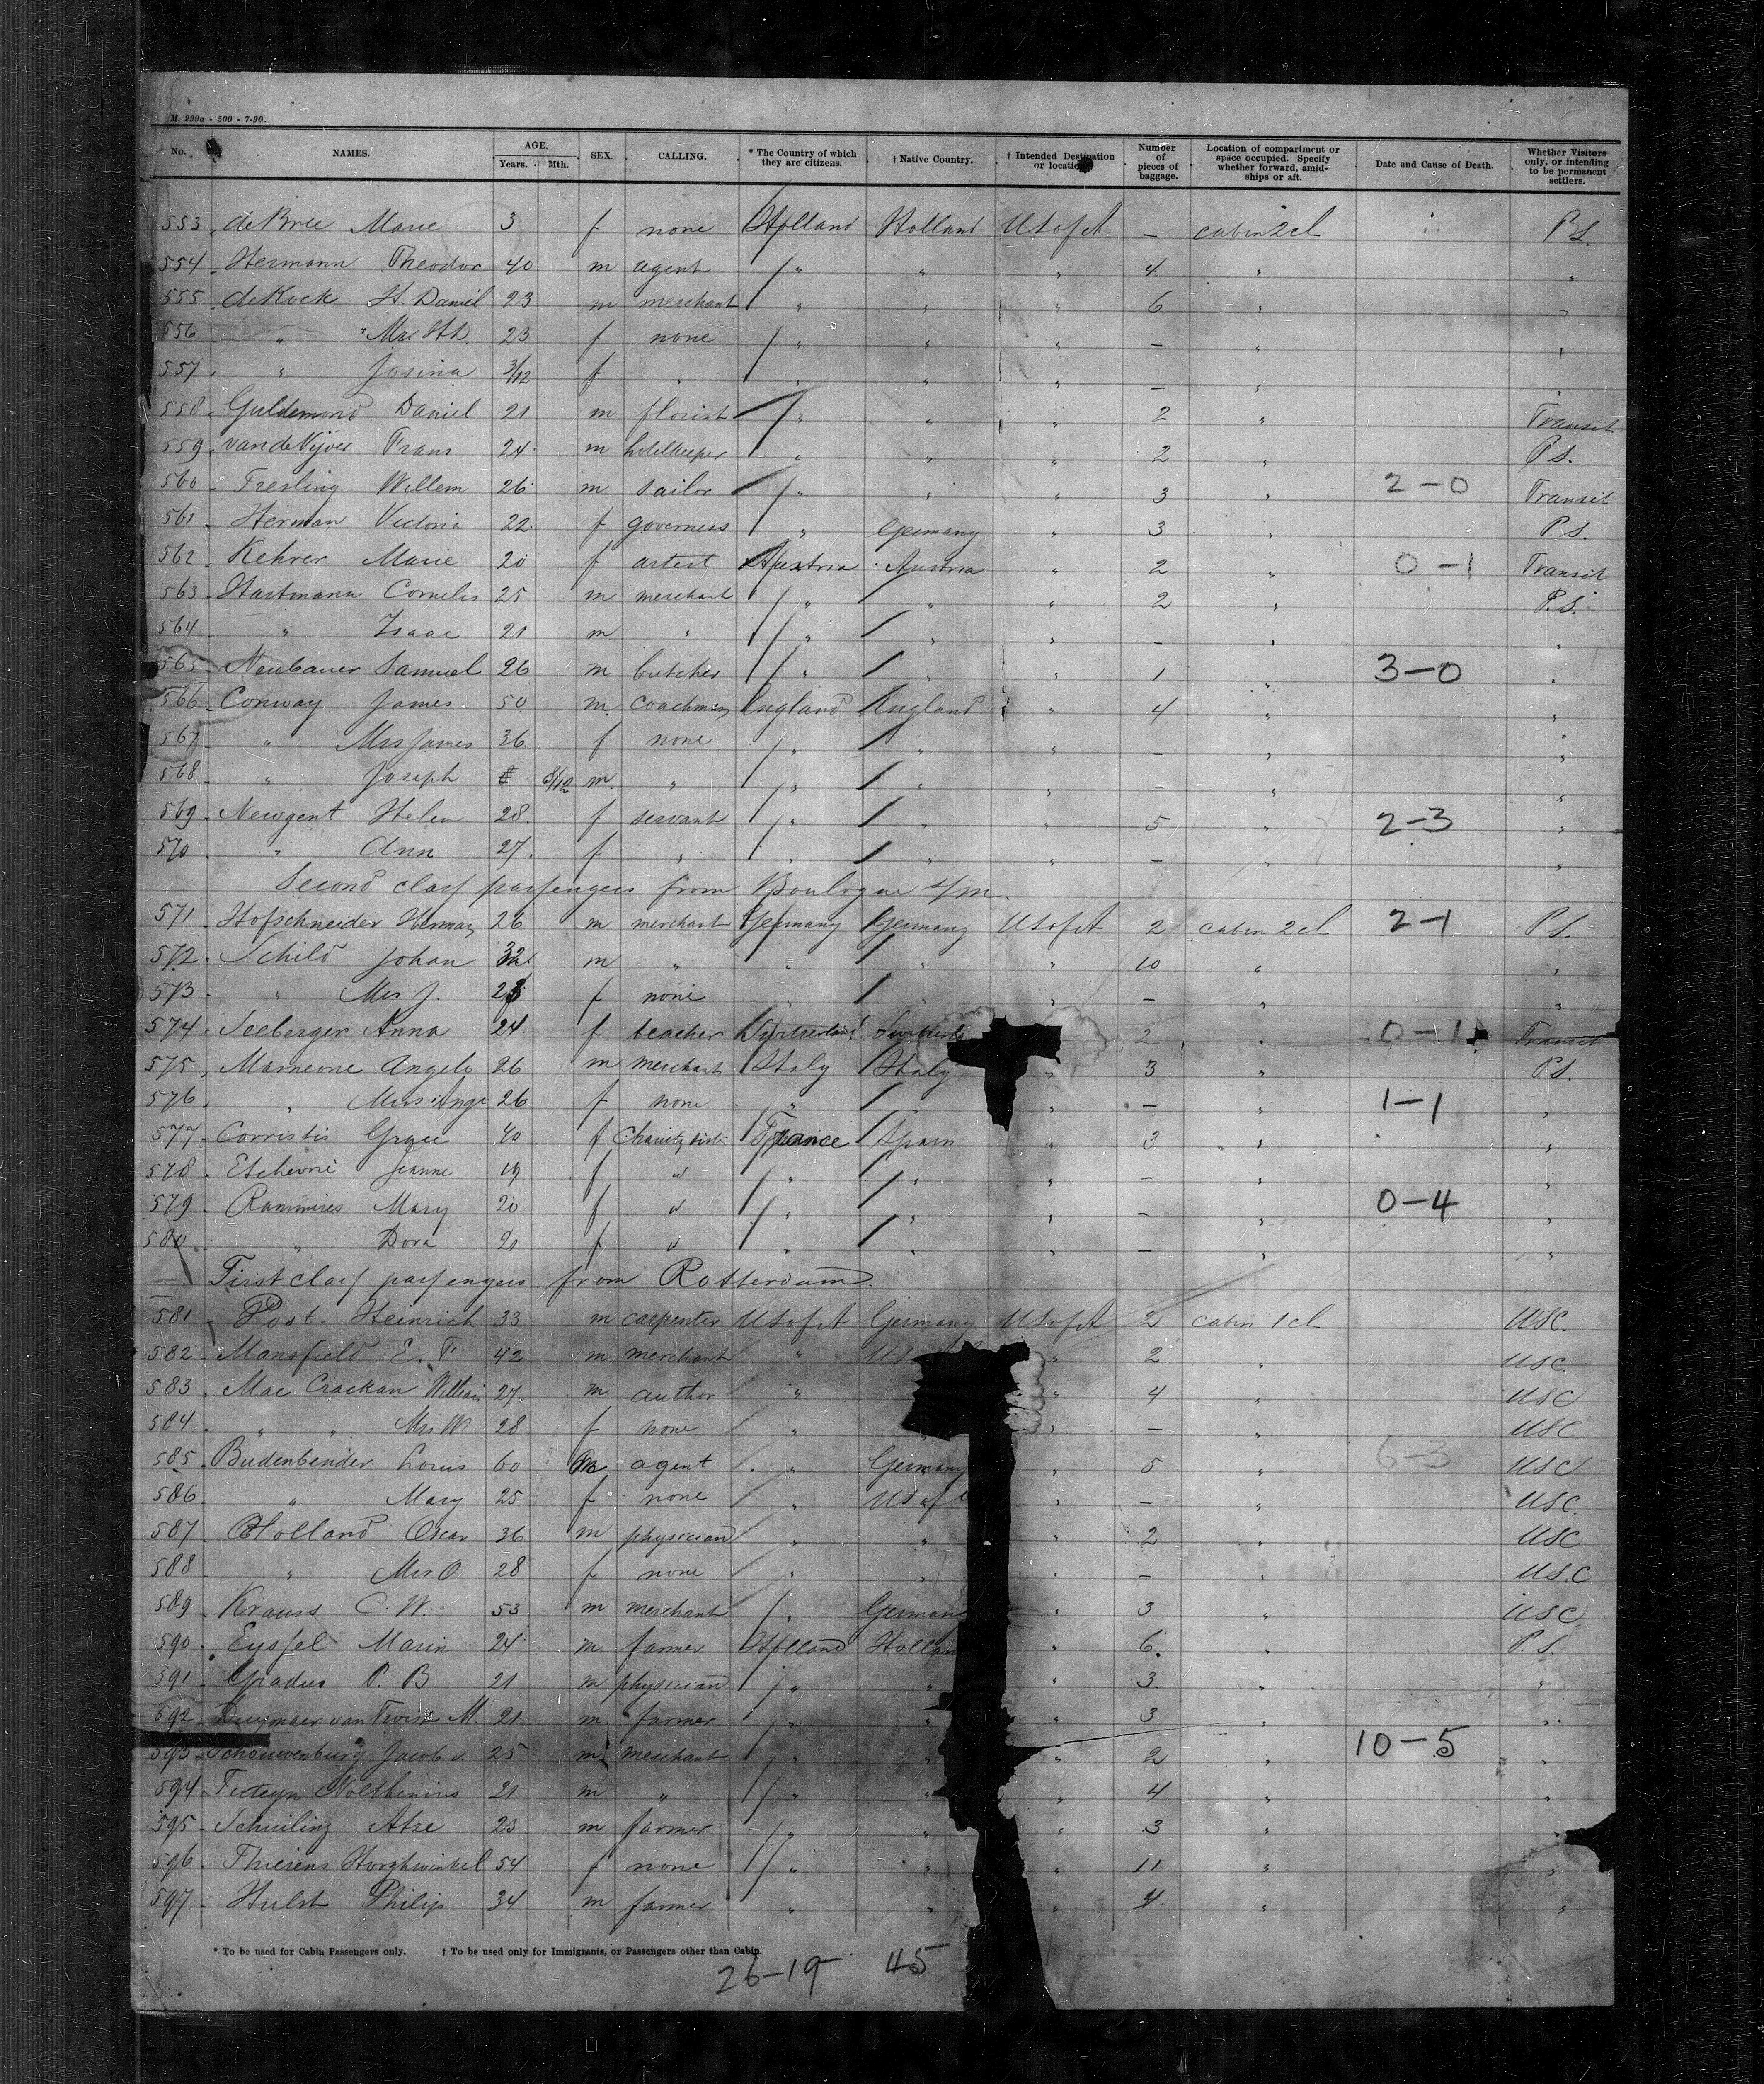 M. 299a - 500 - 7-90.
No. NAMES. AGE. Years. Mth. SEX. CALLING. * The Country of which they are citizens. † Native Country. † Intended Destination or location. Number of pieces of baggage. Location of compartment or space occupied. Specify whether forward, amidships or aft. Date and Cause of Death. Whether Visitors only, or intending to be permanent settlers.
553 de Bree Marie 3 f none Holland Holland U S of A — cabin 2 cl P.S.
554 Hermann Theodor 40 m agent " " " 4 " "
555 de Kock H. Daniel 23 m merchant " " " 6 " "
556 " Mrs H.D. 23 f none " " " — " "
557 " Josina 3/12 f " " " " — " "
558 Guldemond Daniel 21 m florist " " " 2 " Transit
559 van de Vijver Frans 24 m hotelkeeper " " " 2 " P.S.
560 Tresling Willem 26 m sailor " " " 3 " 2-0 Transit
561 Herman Victoria 22 f governess " Germany " 3 " P.S.
562 Kehrer Marie 20 f artist Austria Austria " 2 " 0-1 Transit
563 Hartmann Cornelis 25 m merchant " " " 2 " P.S.
564 " Isaac 21 m " " " " — " "
565 Neubauer Samuel 26 m butcher " " " 1 " 3-0 "
566 Conway James 50 m coachman England England " 4 " "
567 " Mrs James 36 f none " " " — " "
568 " Joseph 8/12 m " " " " — " "
569 Newgent Helen 28 f servant " " " 5 " 2-3 "
570 " Ann 27 f " " " " — " "
Second class passengers from Boulogne s/m.
571 Hofschneider Herman 26 m merchant Germany Germany U S of A 2 cabin 2 cl 2-1 P.S.
572 Schild Johan 32 m " " " " 10 " "
573 " Mrs J. f none " " " — " "
574 Seeberger Anna 24 f teacher Switzerland 2 " 0-1 Transit
575 Marneone Angelo 26 m merchant Italy Italy " 3 " P.S.
576 " Mrs Ange 26 f none " " " — " 1-1 "
577 Corristis Grace 40 f Charity sist France Spain " 3 " "
578 Etchevrie Jeanne 19 f " " " " — " "
579 Rammires Mary 20 f " " " " — " 0-4 "
580 " Dora 21 f " " " " — " "
First class passengers from Rotterdam.
581 Post Heinrich 33 m carpenter U S of A Germany U S of A 2 cabin 1 cl USC.
582 Mansfield E. F. 42 m merchant " US " 2 " USC
583 Mac Crackan William 27 m author " " 4 " USC
584 " " Mrs W 28 f none " " — " USC
585 Budenbender Louis 60 m agent " Germany " 5 " 6-3 USC
586 " Mary 25 f none " U S of " — " USC
587 Holland Oscar 36 m physician " " " 2 " USC
588 " Mrs O 28 f none " " " — " USC
589 Krauss C. W. 53 m merchant " German " 3 " USC
590 Eyssel Marin 24 m farmer Holland Hollan " 6 " P.S.
591 Gradus P. B 21 m physician " " " 3 " "
592 Duymaer van Twist M. 21 m farmer " " " 3 " "
593 Schouwenburg Jacob v. 25 m merchant " " " 2 " 10-5 "
594 Tuteyn Nolthenius 21 m " " " " 4 " "
595 Schuiling Atse 23 m farmer " " " 3 " "
596 Thierens 54 f none " " " 11 " "
597 Hulst Philip 34 m farmer " " " 4 " "
* To be used for Cabin Passengers only. † To be used only for Immigrants, or Passengers other than Cabin.
26-19 45